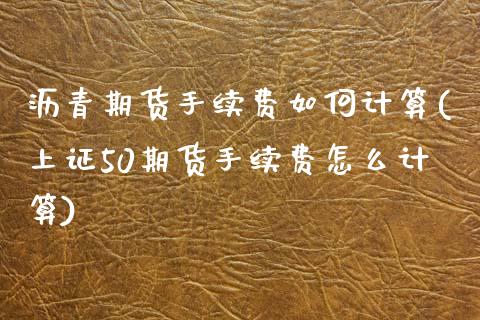 沥青期货手续费如何计算(
上证50期货手续费怎么计
算)